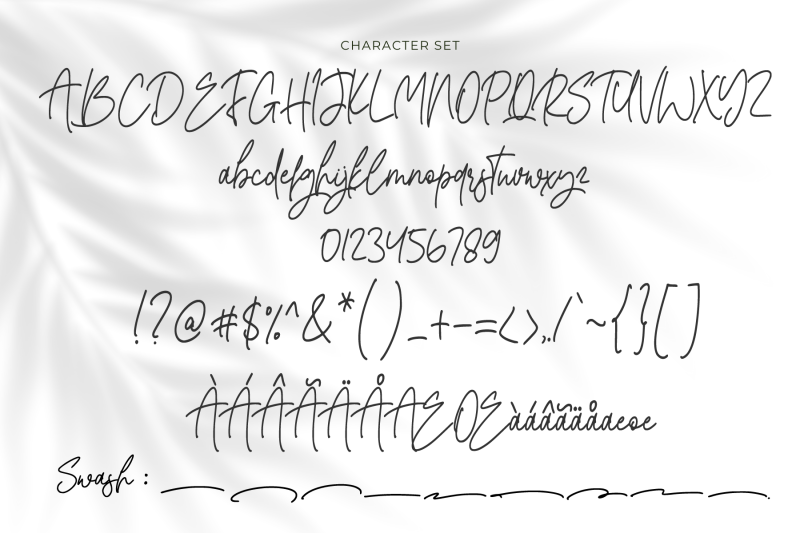 CHARACTER SET
ABCDEFGHIJKLMNOPQRSTUVWXYZ
abcdefghijklmnopqrstuvwxyz
0123456789
!?@#$%^&*()_+-=<>,./`~{}[]
ÀÁÂÃÄÅÆŒàáâãäåæœ
Swash :